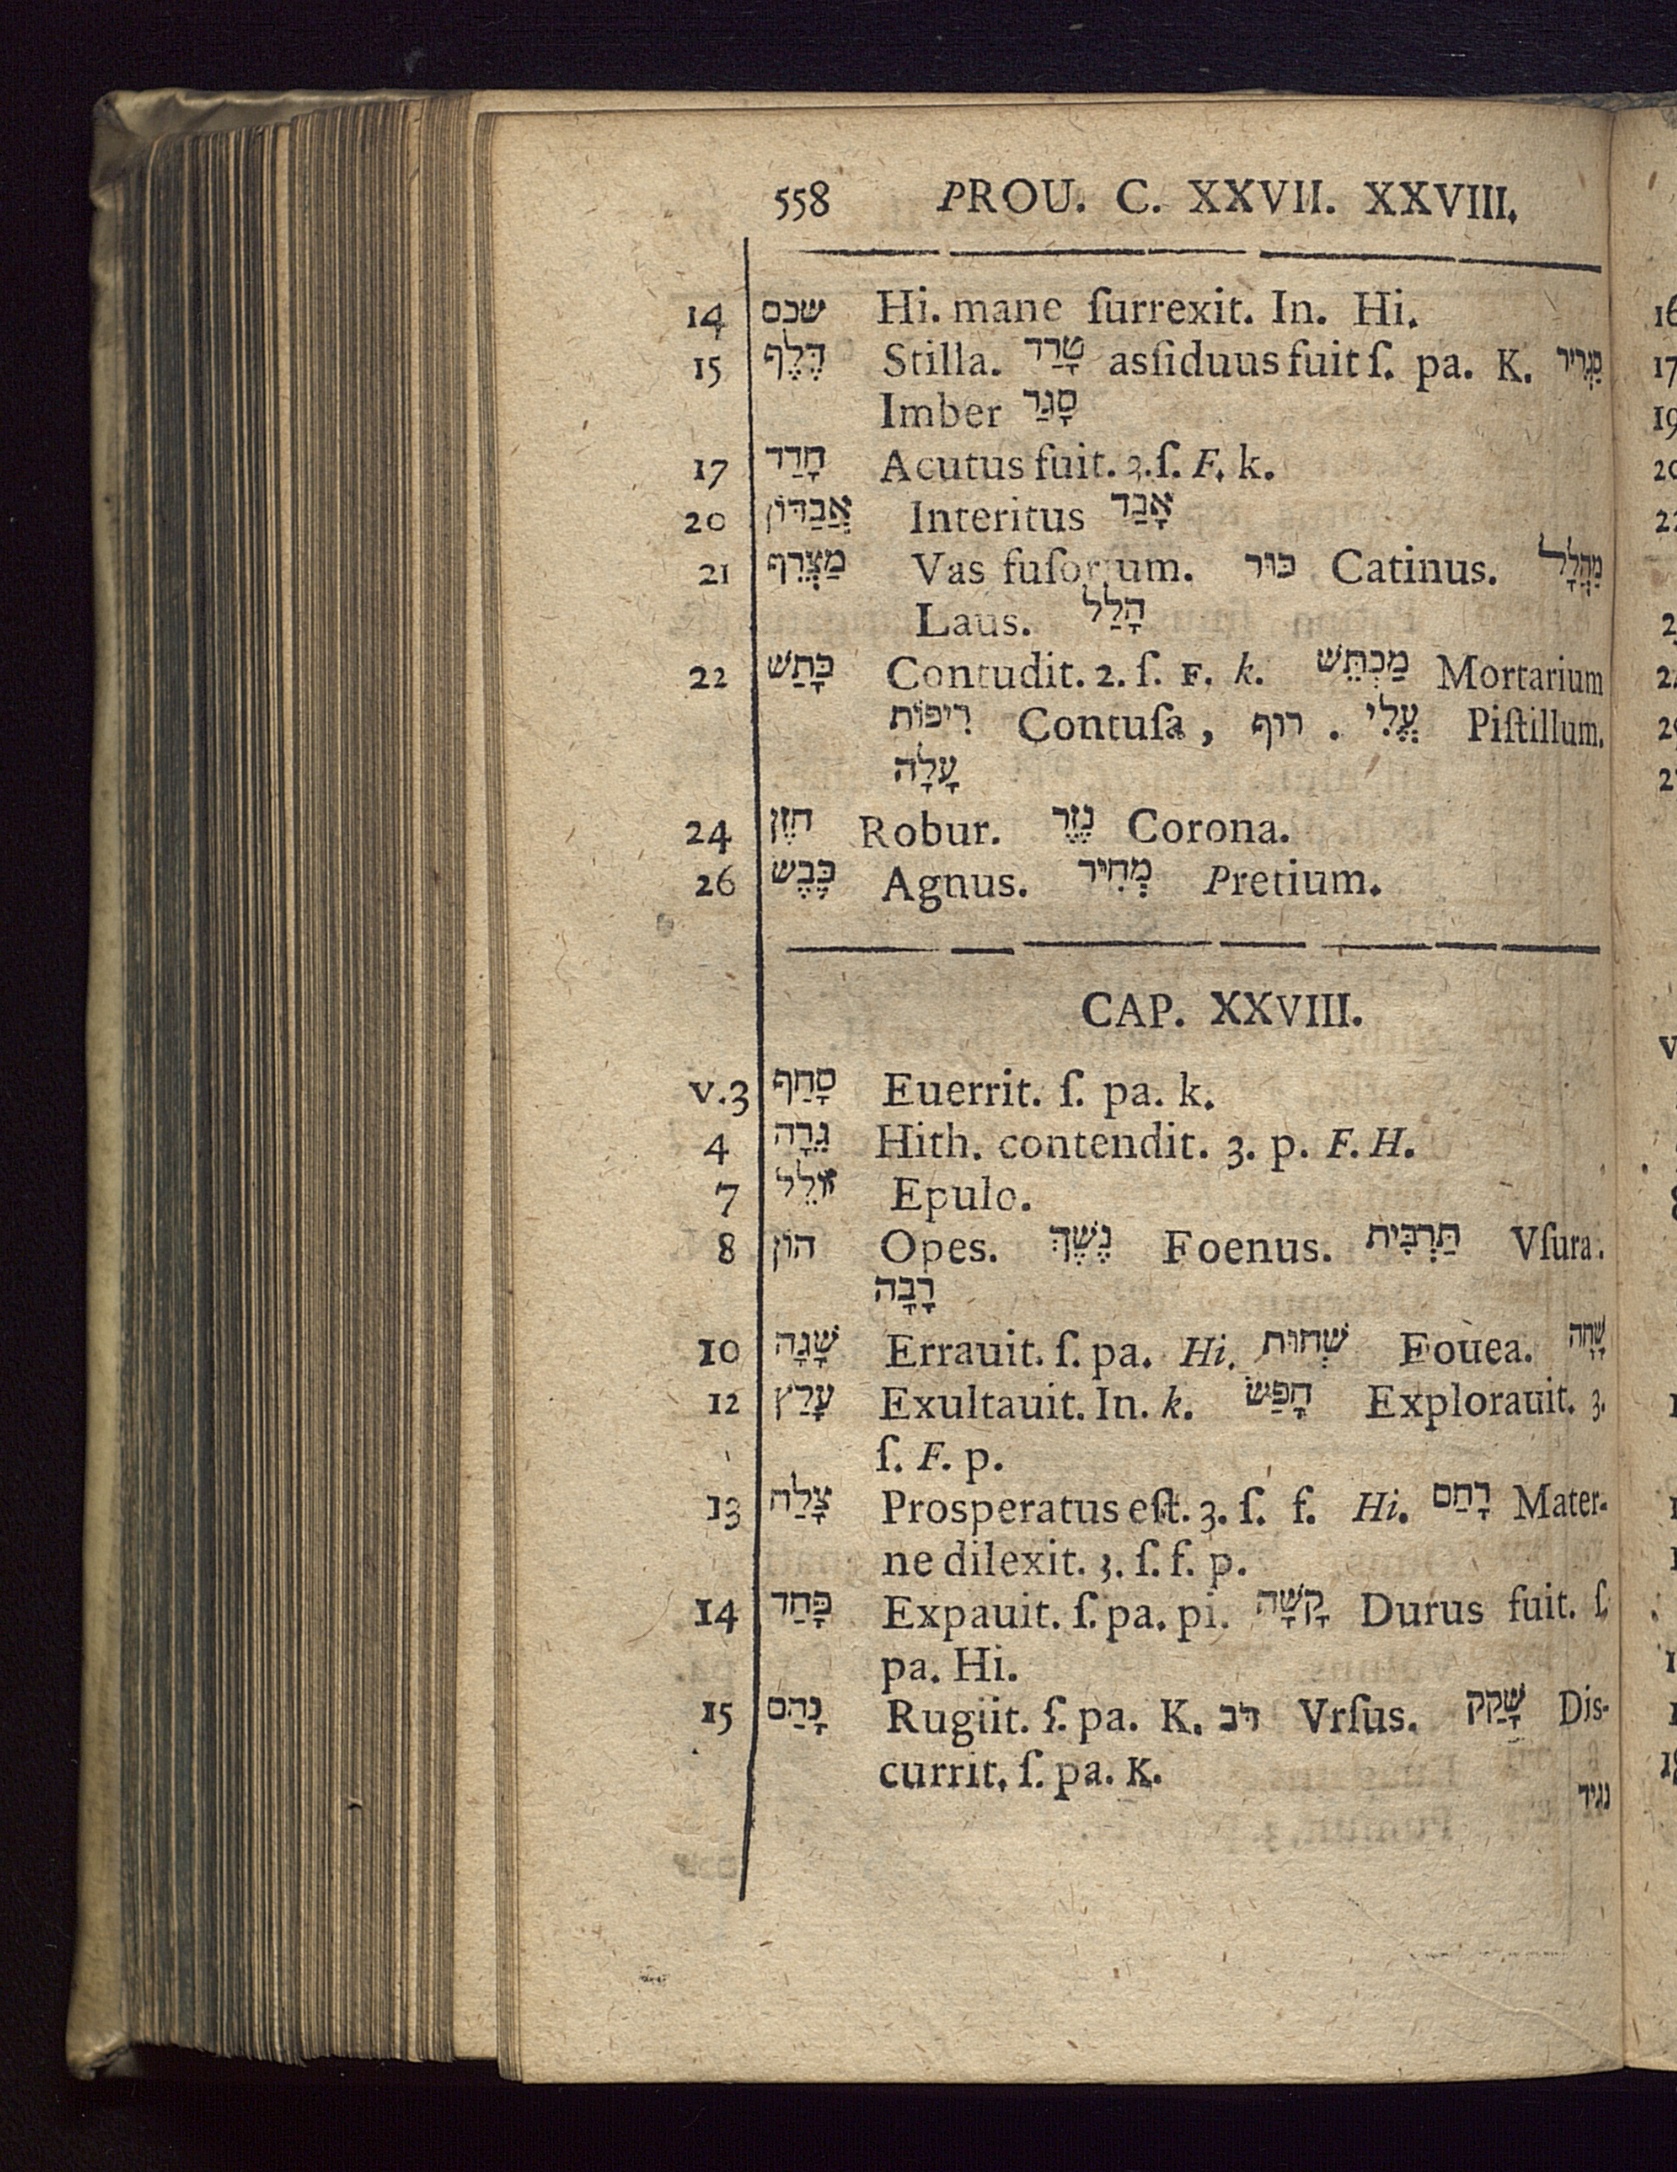 558 PROU. C. XXVII. XXVIII.
14 שכם Hi. mane ſurrexit. In. Hi.
15 דֶּלֶף Stilla. טָרַד asſiduus fuit ſ. pa. K. סַגְרִיר
Imber סָגַר
17 חָדַד Acutus fuit. 3. ſ. F. k.
20 אֲבַדּוֹן Interitus אָבַד
21 מַצְרֵף Vas fuſorium. כּוּר Catinus. מַהֲלָל
Laus. הָלַל
22 כָּתַשׁ Contudit. 2. ſ. F. k. מַכְתֵּשׁ Mortarium
רִיפוֹת Contuſa, רוף . עֱלִי Piſtillum.
עָלָה
24 חֹזֶן Robur. נֶזֶר Corona.
26 כֶּבֶשׂ Agnus. מְחִיר Pretium.
CAP. XXVIII.
v. 3 סָחַף Euerrit. ſ. pa. k.
4 גָרָה Hith. contendit. 3. p. F. H.
7 זלֵל Epulo.
8 הוֹן Opes. נֶשֶׁךְ Foenus. תַּרְבִּית Vſura.
רָבָה
10 שָׁגָה Errauit. ſ. pa. Hi. שְׁחוּת Fouea. שָׁחָה
12 עָלַץ Exultauit. In. k. חָפַשׂ Explorauit. 3.
ſ. F. p.
13 צָלַח Prosperatus eſt. 3. ſ. f. Hi. רָחַם Mater-
ne dilexit. 3. ſ. f. p.
14 פָּחַד Expauit. ſ. pa. pi. קָשָׁה Durus fuit. ſ.
pa. Hi.
15 נָהַם Rugiit. ſ. pa. K. דּב Vrſus. שָׁקַק Dis-
currit. ſ. pa. K.
נגיד